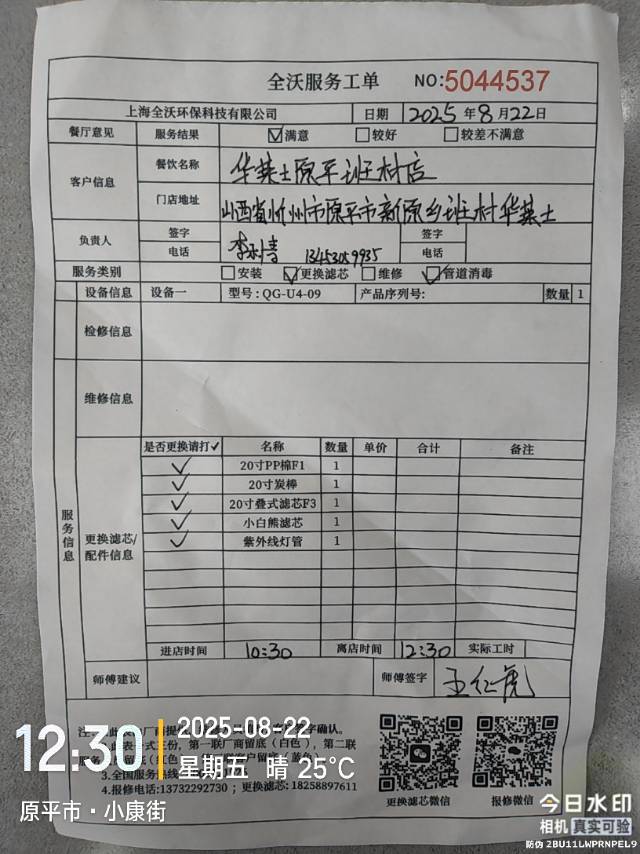 全沃服务工单 NO:5044537
上海全沃环保科技有限公司 日期 2025年8月22日
餐厅意见 服务结果 ☑满意 □较好 □较差不满意
客户信息 餐饮名称 华莱士原平班村店
门店地址 山西省忻州市原平市新原乡班村华莱士
负责人 签字 签字
电话 电话
服务类别 □安装 ☑更换滤芯 □维修 ☑管道消毒
设备信息 设备一 型号:QG-U4-09 产品序列号: 数量 1
检修信息
维修信息
服务信息
更换滤芯/配件信息
是否更换请打✓ 名称 数量 单价 合计 备注
✓ 20寸PP棉F1 1
✓ 20寸炭棒 1
✓ 20寸叠式滤芯F3 1
✓ 小白熊滤芯 1
✓ 紫外线灯管 1
进店时间 10:30 离店时间 12:30 实际工时
师傅建议 师傅签字 王红虎
字确认。
表一式三份，第一联厂商留底（白色），第二联
3.全国服务
4.报修电话:13732292730；更换滤芯:18258897611
更换滤芯微信 报修微信
12:30 2025-08-22
星期五 晴 25°C
原平市·小康街
今日水印
相机 真实可验
防伪 2BU11LWPRNPEL9